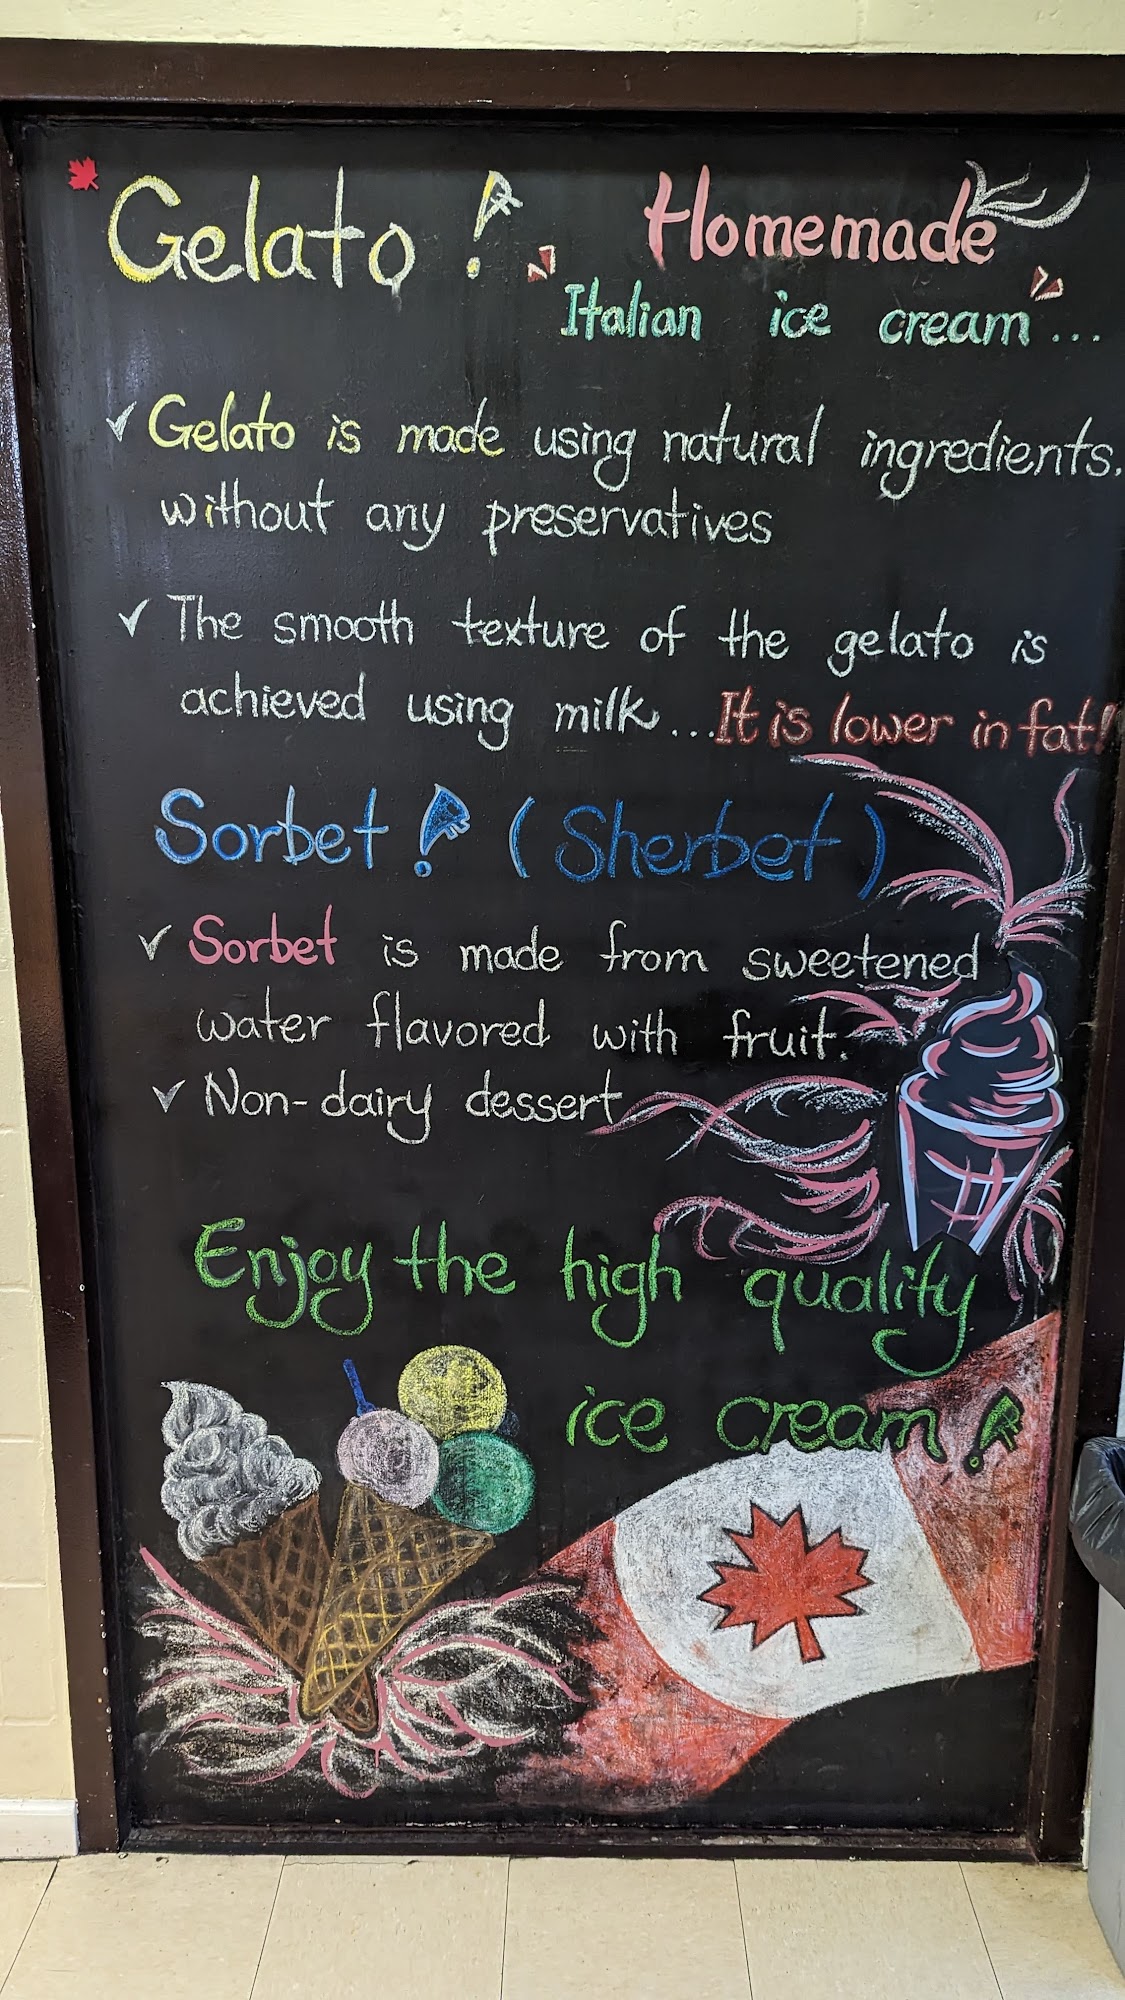 Gelato! Homemade
Italian ice cream...
✓ Gelato is made using natural ingredients.
without any preservatives
✓ The smooth texture of the gelato is
achieved using milk... It is lower in fat!
Sorbet! (Sherbet)
✓ Sorbet is made from sweetened
water flavored with fruit.
✓ Non-dairy dessert
Enjoy the high quality
ice cream!